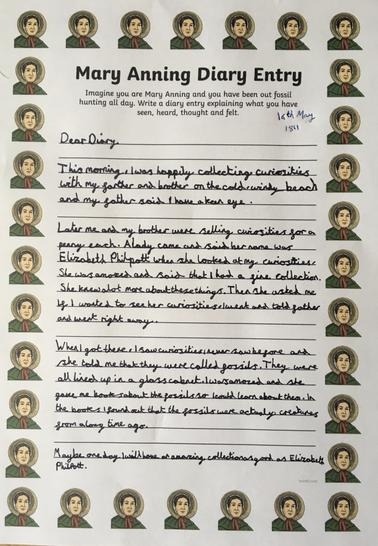 Mary Anning Diary Entry
Imagine you are Mary Anning and you have been out fossil
hunting all day. Write a diary entry explaining what you have
seen, heard, thought and felt.
16th May
1811
Dear Diary,
This morning, I was happily collecting curiosities
with my farther and brother on the cold windy beach
and my father said I have a keen eye.
Later me and my brother were selling curiosities for a
penny each. A lady came and said her name was
Elizabeth Philpott when she looked at my curiosities.
She was amazed and said that I had a fine collection.
She knew alot more about these things. Then she asked me
if I wanted to see her curiosities. I went and told father
and went right away.
When I got there, I saw curiosities I never saw before and
she told me that they were called fossils. They were
all lined up in a glass cabinet. I was amazed and she
gave me books about the fossils so I could learn about them. In
the books I found out that the fossils were actualy creatures
from a long time ago.
Maybe one day I will have an amazing collection as good as Elizabeth
Philpott.